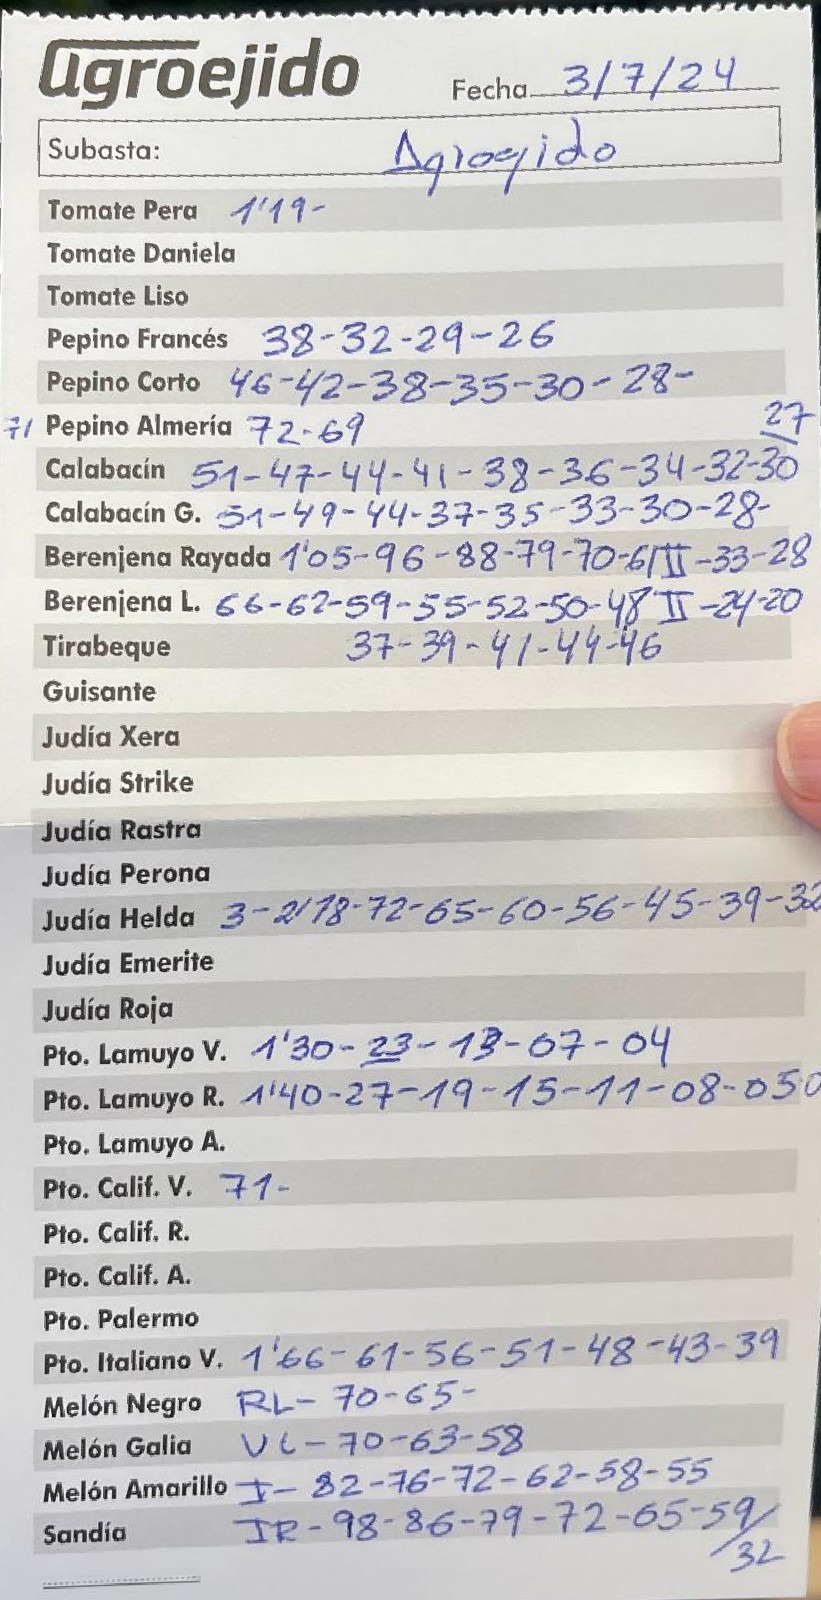 agroejido
Fecha 3/7/24
Subasta: Agroejido
Tomate Pera 1'19-
Tomate Daniela
Tomate Liso
Pepino Francés 38-32-29-26
Pepino Corto 46-42-38-35-30-28-
71 Pepino Almería 72-69
27
Calabacín 51-47-44-41-38-36-34-32-30
Calabacín G. 51-49-44-37-35-33-30-28-
Berenjena Rayada 1'05-96-88-79-70-61 II-33-28
Berenjena L. 66-62-59-55-52-50-48 II-24-20
Tirabeque 37-39-41-44-46
Guisante
Judía Xera
Judía Strike
Judía Rastra
Judía Perona
Judía Helda 3-2'78-72-65-60-56-45-39-32
Judía Emerite
Judía Roja
Pto. Lamuyo V. 1'30-23-13-07-04
Pto. Lamuyo R. 1'40-27-19-15-11-08-05
Pto. Lamuyo A.
Pto. Calif. V. 71-
Pto. Calif. R.
Pto. Calif. A.
Pto. Palermo
Pto. Italiano V. 1'66-61-56-51-48-43-39
Melón Negro RL-70-65-
Melón Galia VL-70-63-58
Melón Amarillo I-82-76-72-62-58-55
Sandía IR-98-86-79-72-65-59/
32